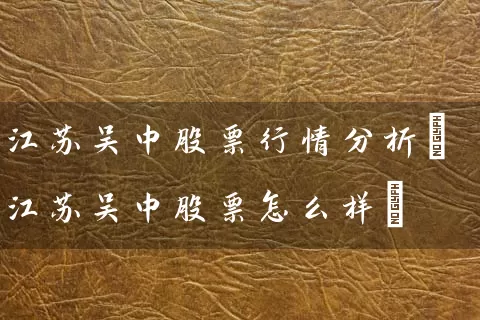 江苏吴中股票行情分析
江苏吴中股票怎么样